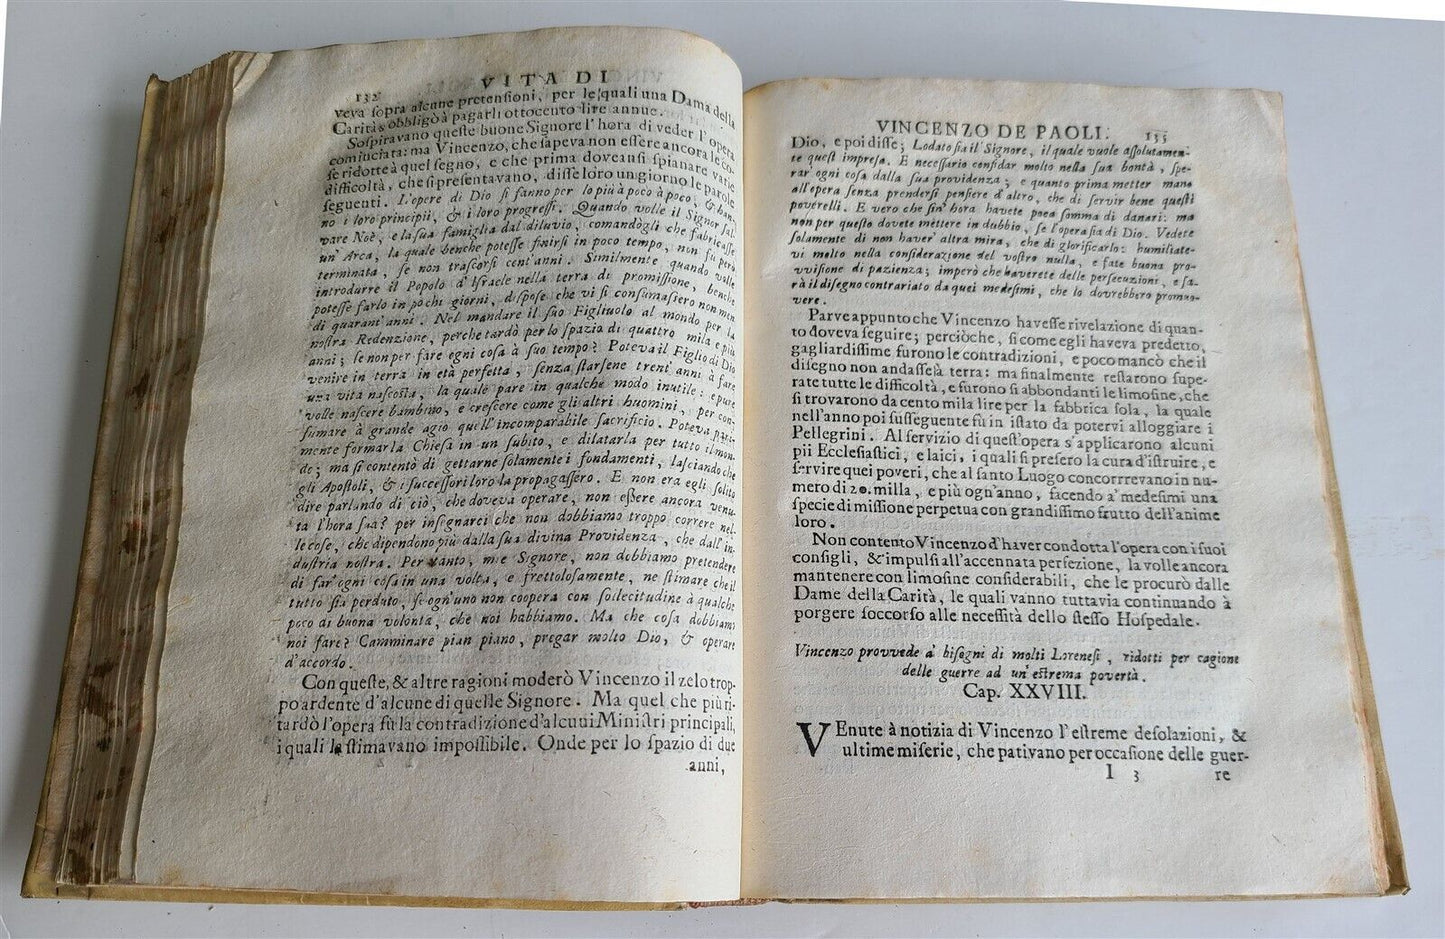 132 VITA DI
veva sopra alcune pretensioni, per le quali una Dama della
Carità s'obbligò à pagarli ottocento lire annue.
Sospiravano queste buone Signore l'hora di veder l'opera
cominciata: ma Vincenzo, che sapeva non essere ancora le co-
se ridotte à quel segno, e che prima doveansi spianare varie
difficoltà, che si presentavano, disse loro un giorno le parole
seguenti. L'opere di Dio si fanno per lo più à poco à poco, & han-
no i loro principii, & i loro progressi. Quando volle il Signor sal-
vare Noè, e la sua famiglia dal diluvio, comandògli che fabricasse
un' Arca, la quale benche potesse finirsi in poco tempo, non fu però
terminata, se non trascorsi cent'anni. Similmente quando volle
introdurre il Popolo d'Israele nella terra di promissione, benche
potesse farlo in pochi giorni, dispose che vi si consumassero non men
di quarant'anni. Nel mandare il suo Figliuolo al mondo per la
nostra Redenzione, perche tardò per lo spazio di quattro mila e più
anni; se non per fare egni cosa à suo tempo? Poteva il Figlio di Dio
venire in terra in età perfetta, senza starsene trent'anni à fare
una vita nascosta, la quale pare in qualche modo inutile: e pure
volle nascere bambino, e crescere come gli altri huomini, per con-
sumare à grande agio quell'incomparabile sacrificio. Poteva pari-
mente formar la Chiesa in un subito, e dilatarla per tutto il mon-
de; ma si contentò di gettarne solamente i fondamenti, lasciando che
gli Apostoli, & i successori loro la propagassero. E non era egli solito
dire parlando di ciò, che doveva operare, non essere ancora venu-
ta l'hora sua? per insegnarci che non dobbiamo troppo correre nel-
le cose, che dipendono più dalla sua divina Providenza, che dall'in-
dustria nostra. Per tanto, mie Signore, non dobbiamo pretendere
di far'ogni cosa in una volta, e frettolosamente, ne stimare che il
tutto sia perduto, se ogn'uno non coopera con sollecitudine à qualche
poco di buona volontà, che noi habbiamo. Ma che cosa dobbiamo
noi fare? Camminare pian piano, pregar molto Dio, & operare
d'accordo.
Con queste, & altre ragioni moderò Vincenzo il zelo trop-
po ardente d'alcune di quelle Signore. Ma quel che più ri-
tardò l'opera fù la contradizione d'alcuni Ministri principali,
i quali la stimavano impossibile. Onde per lo spazio di due
anni,
VINCENZO DE PAOLI. 133
Dio, e poi disse; Lodato sia il Signore, il quale vuole assolutamen-
te quest impresa. E necessario confidar molto nella sua bontà, spe-
rar ogni cosa dalla sua providenza; e quanto prima metter mano
all'opera senza prendersi pensiere d'altro, che di servir bene questi
poverelli. E vero che fin' hora havete poca somma di danari: ma
non per questo dovete mettere in dubbio, se l'opera sia di Dio. Vedete
solamente di non haver' altra mira, che di glorificarlo: humiliate-
vi molto nella considerazione del vostro nulla, e fate buona pro-
vvisione di pazienza; imperò che haverete delle persecuzioni, e sa-
rà il disegno contrariato da quei medesimi, che lo dovrebbero promuo-
vere.
Parve appunto che Vincenzo havesse rivelazione di quan-
to doveva seguire; perciòche, si come egli haveva predetto,
gagliardissime furono le contradizioni, e poco mancò che il
disegno non andasse à terra: ma finalmente restarono supe-
rate tutte le difficoltà, e furono si abbondanti le limosine, che
si trovarono da cento mila lire per la fabbrica sola, la quale
nell'anno poi susseguente fù in istato da potervi alloggiare i
Pellegrini. Al servizio di quest'opera s'applicarono alcuni
pii Ecclesiastici, e laici, i quali si presero la cura d'istruire, e
servire quei poveri, che al santo Luogo concorrrevano in nu-
mero di 20. milla, e più ogn'anno, facendo a' medesimi una
specie di missione perpetua con grandissimo frutto dell'anime
loro.
Non contento Vincenzo d'haver condotta l'opera con i suoi
consigli, & impulsi all'accennata perfezione, la volle ancora
mantenere con limosine considerabili, che le procurò dalle
Dame della Carità, le quali vanno tuttavia continuando à
porgere soccorso alle necessità dello stesso Hospedale.
Vincenzo provvede a' bisegni di molti Lorenesi, ridotti per cagione
delle guerre ad un'estrema povertà.
Cap. XXVIII.
VEnute à notizia di Vincenzo l'estreme desolazioni, &
ultime miserie, che pativano per occasione delle guer-
I 3 re